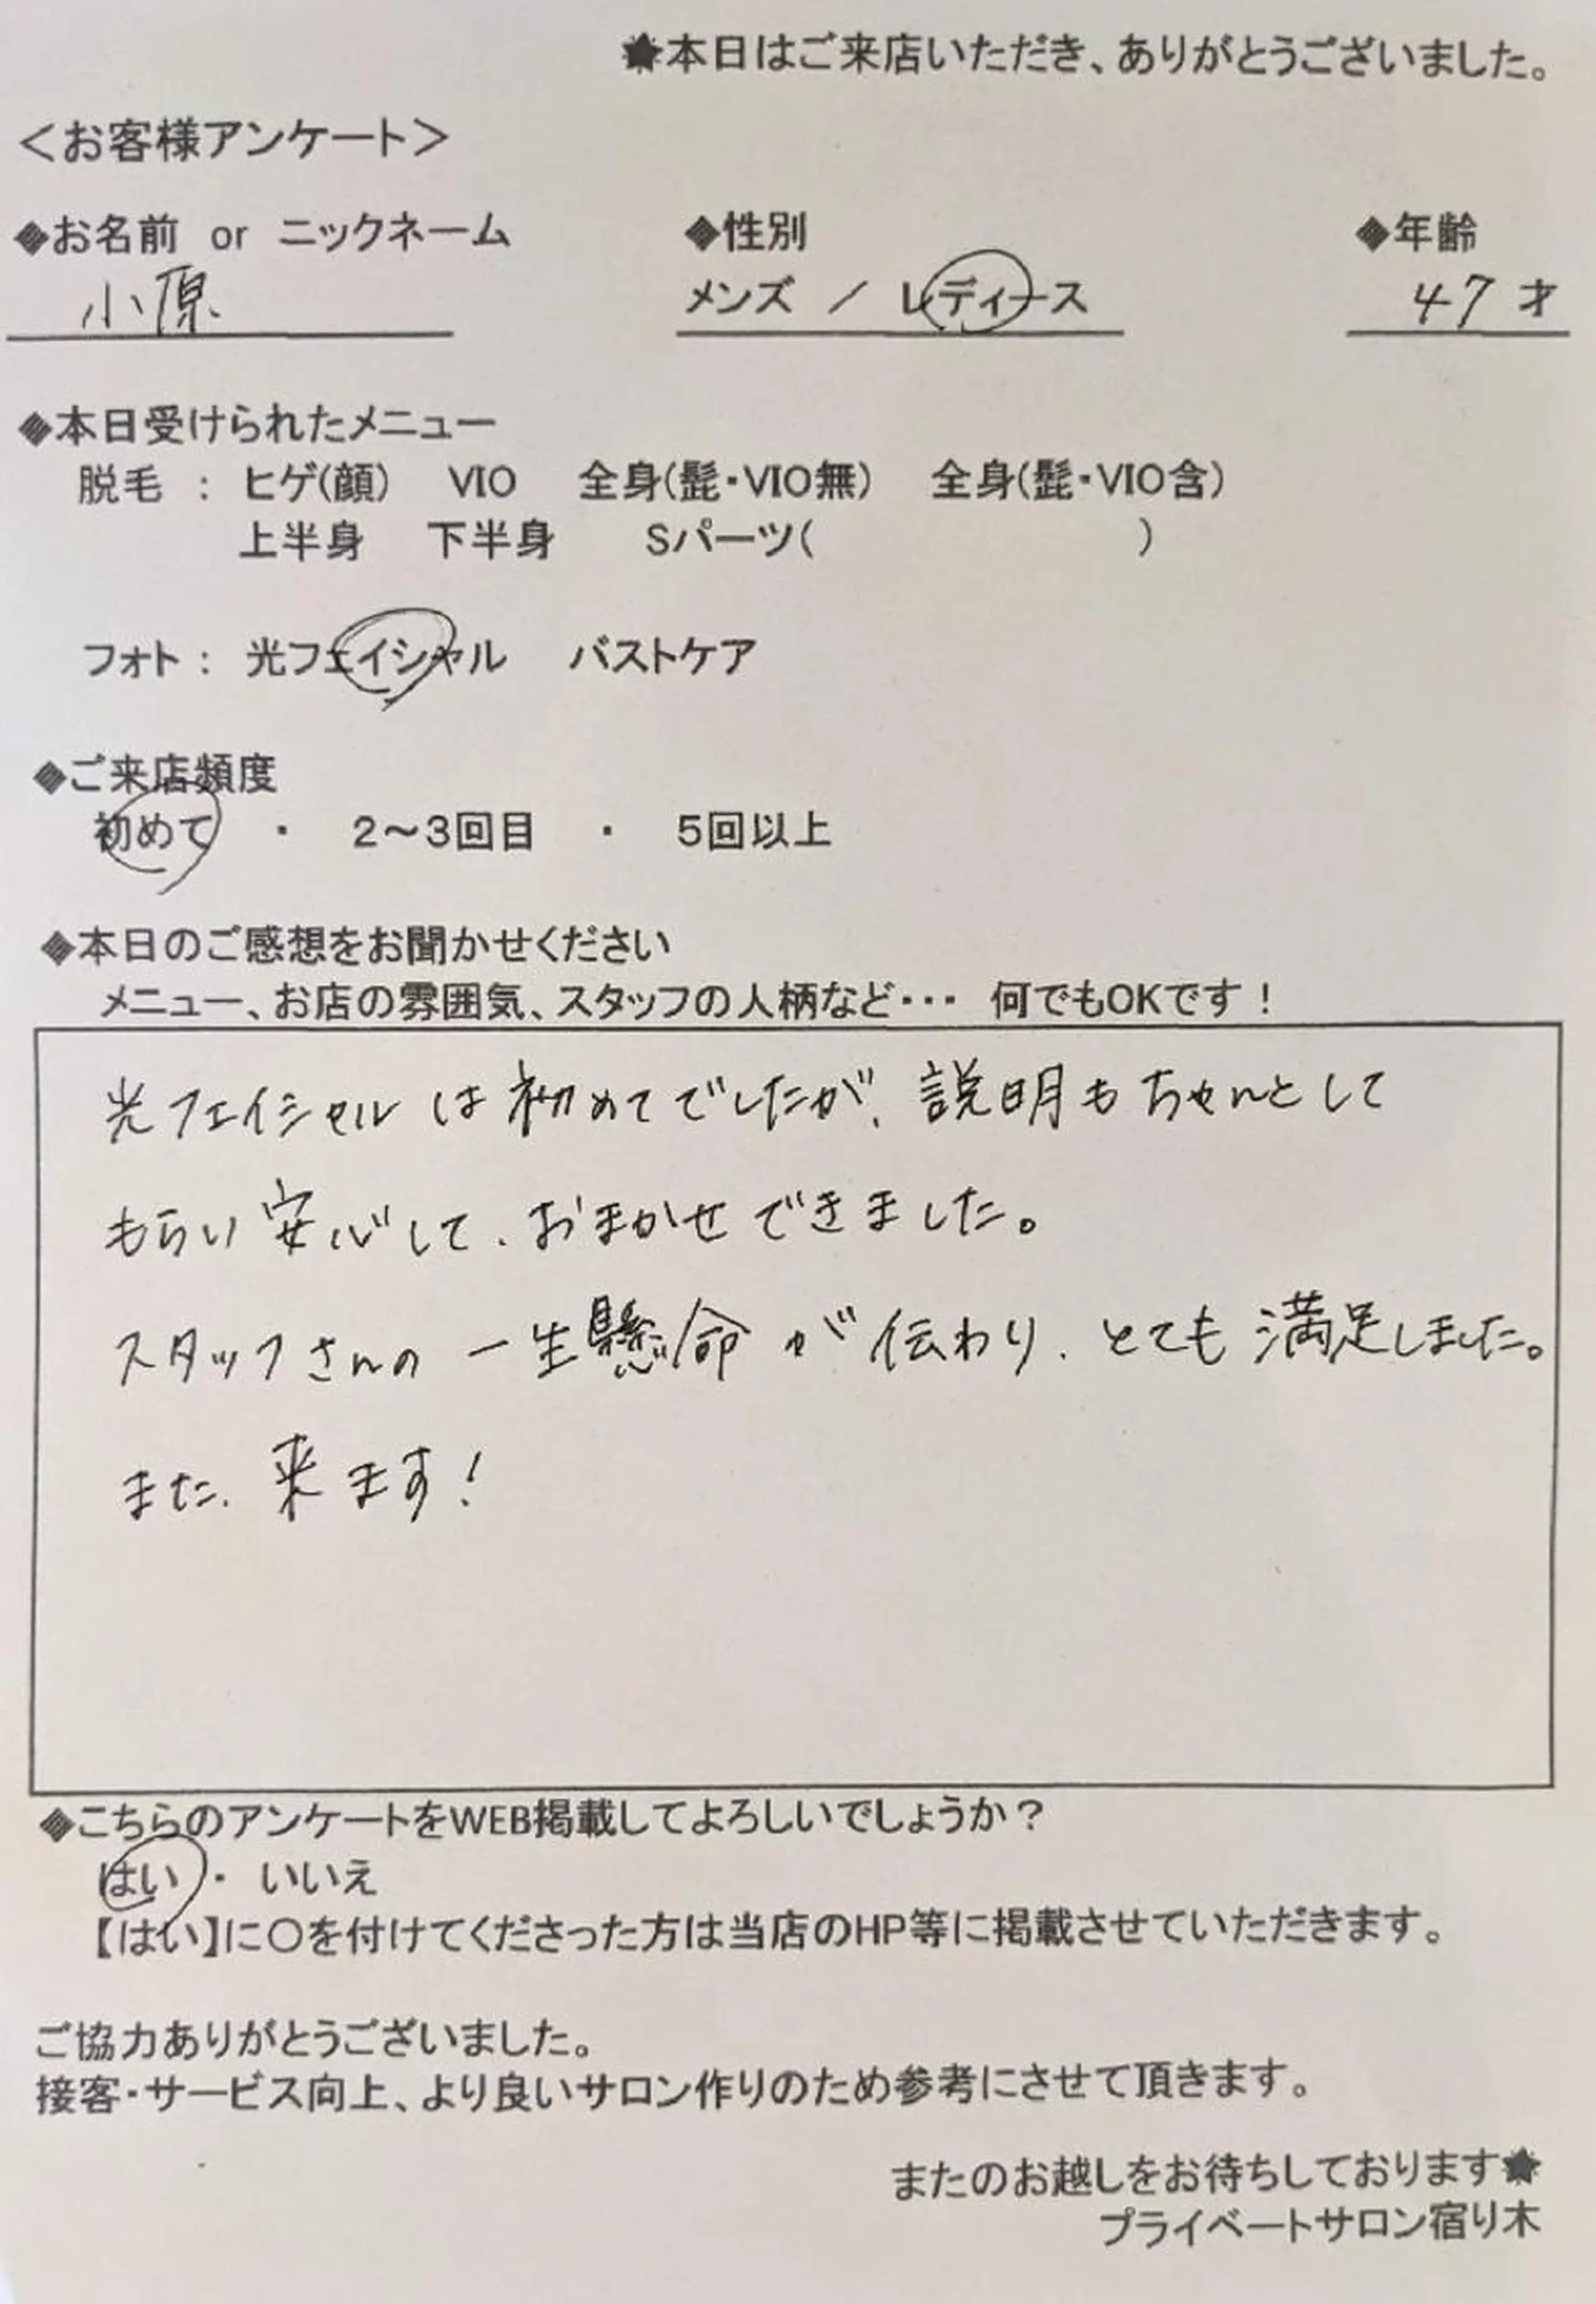 ★本日はご来店いただき、ありがとうございました。
＜お客様アンケート＞
◆お名前 or ニックネーム ◆性別 ◆年齢
小原 メンズ ／ レディース 47才
◆本日受けられたメニュー
脱毛 ： ヒゲ(顔) VIO 全身(髭・VIO無) 全身(髭・VIO含)
上半身 下半身 Sパーツ( )
フォト ： 光フェイシャル バストケア
◆ご来店頻度
初めて ・ 2～3回目 ・ 5回以上
◆本日のご感想をお聞かせください
メニュー、お店の雰囲気、スタッフの人柄など・・・ 何でもOKです！
光フェイシャルは初めてでしたが、説明もちゃんとして
もらい安心して、おまかせできました。
スタッフさんの一生懸命が伝わり、とても満足しました。
また、来ます！
◆こちらのアンケートをWEB掲載してよろしいでしょうか？
はい ・ いいえ
【はい】に〇を付けてくださった方は当店のHP等に掲載させていただきます。
ご協力ありがとうございました。
接客・サービス向上、より良いサロン作りのため参考にさせて頂きます。
またのお越しをお待ちしております★
プライベートサロン宿り木